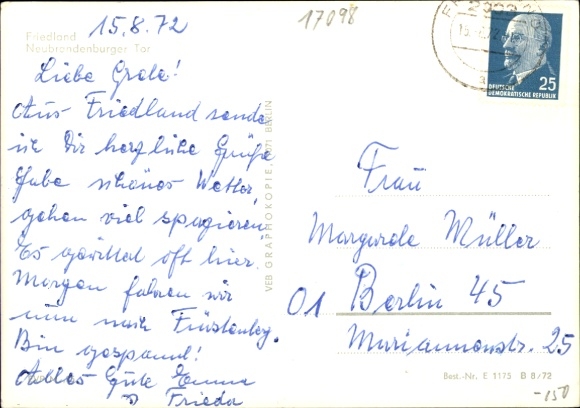 15.8.72
17098
Friedland
Neubrandenburger Tor
Liebe Grete!
Aus Friedland sende
ich Dir herzliche Grüße
Habe schönes Wetter,
gehen viel spazieren
Es gewittert oft hier.
Morgen fahren wir
nun nach Fürstenberg.
Bin gespannt!
Alles Gute Emma
Frieda
VEB GRAPHOKOPIE BERLIN
25
DEUTSCHE
DEMOKRATISCHE REPUBLIK
Frau
Müller
01 Berlin 45
Mariannenstr. 25
Best.-Nr. E 1175 B 8/72
-150